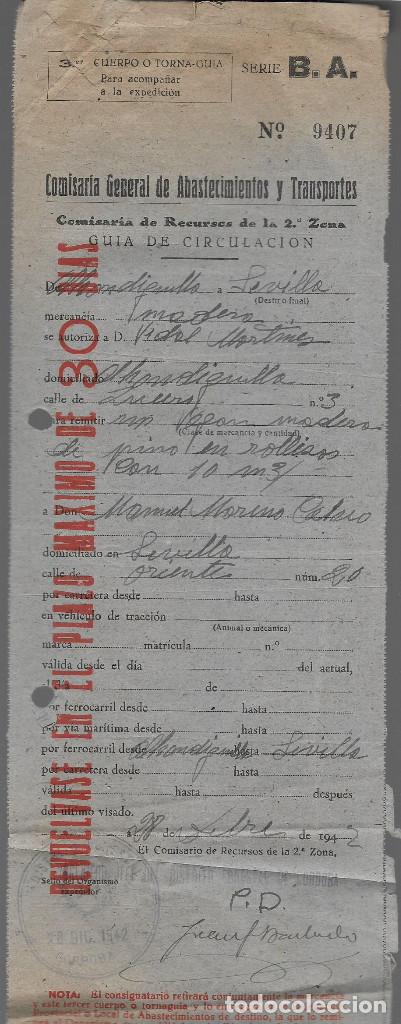 3er CUERPO O TORNA-GUIA
Para acompañar
a la expedición
SERIE B. A.
Nº 9407
Comisaría General de Abastecimientos y Transportes
Comisaría de Recursos de la 2.ª Zona
GUIA DE CIRCULACION
De a Sevilla
(Destino final)
mercancía madera
se autoriza a D. Vidal Martínes
domiciliado
calle de Lucero n.º 3
para remitir un vagon madera
(Clase de mercancía y cantidad)
de pino en rollisos
con 10 m3/
a Don Manuel Moreno
domiciliado en Sevilla
calle de oriente núm. 20
por carretera desde hasta
en vehículo de tracción
(Animal o mecánica)
marca matrícula n.º
válida desde el día del actual,
al día de
por ferrocarril desde hasta
por vía marítima desde hasta
por ferrocarril desde hasta Sevilla
por carretera desde hasta
válida hasta después
del último visado.
a 28 de de 1942
El Comisario de Recursos de la 2.ª Zona,
Sello del Organismo
expedidor
P.D.
28 DIC. 1942
DEVUELVASE EN EL PLAZO MAXIMO DE 30 DIAS
NOTA: El consignatario retirará
y este tercer cuerpo o tornaguía y lo
Provincial o Local de Abastecimientos de destino, la que lo remi-
todocoleccion.net